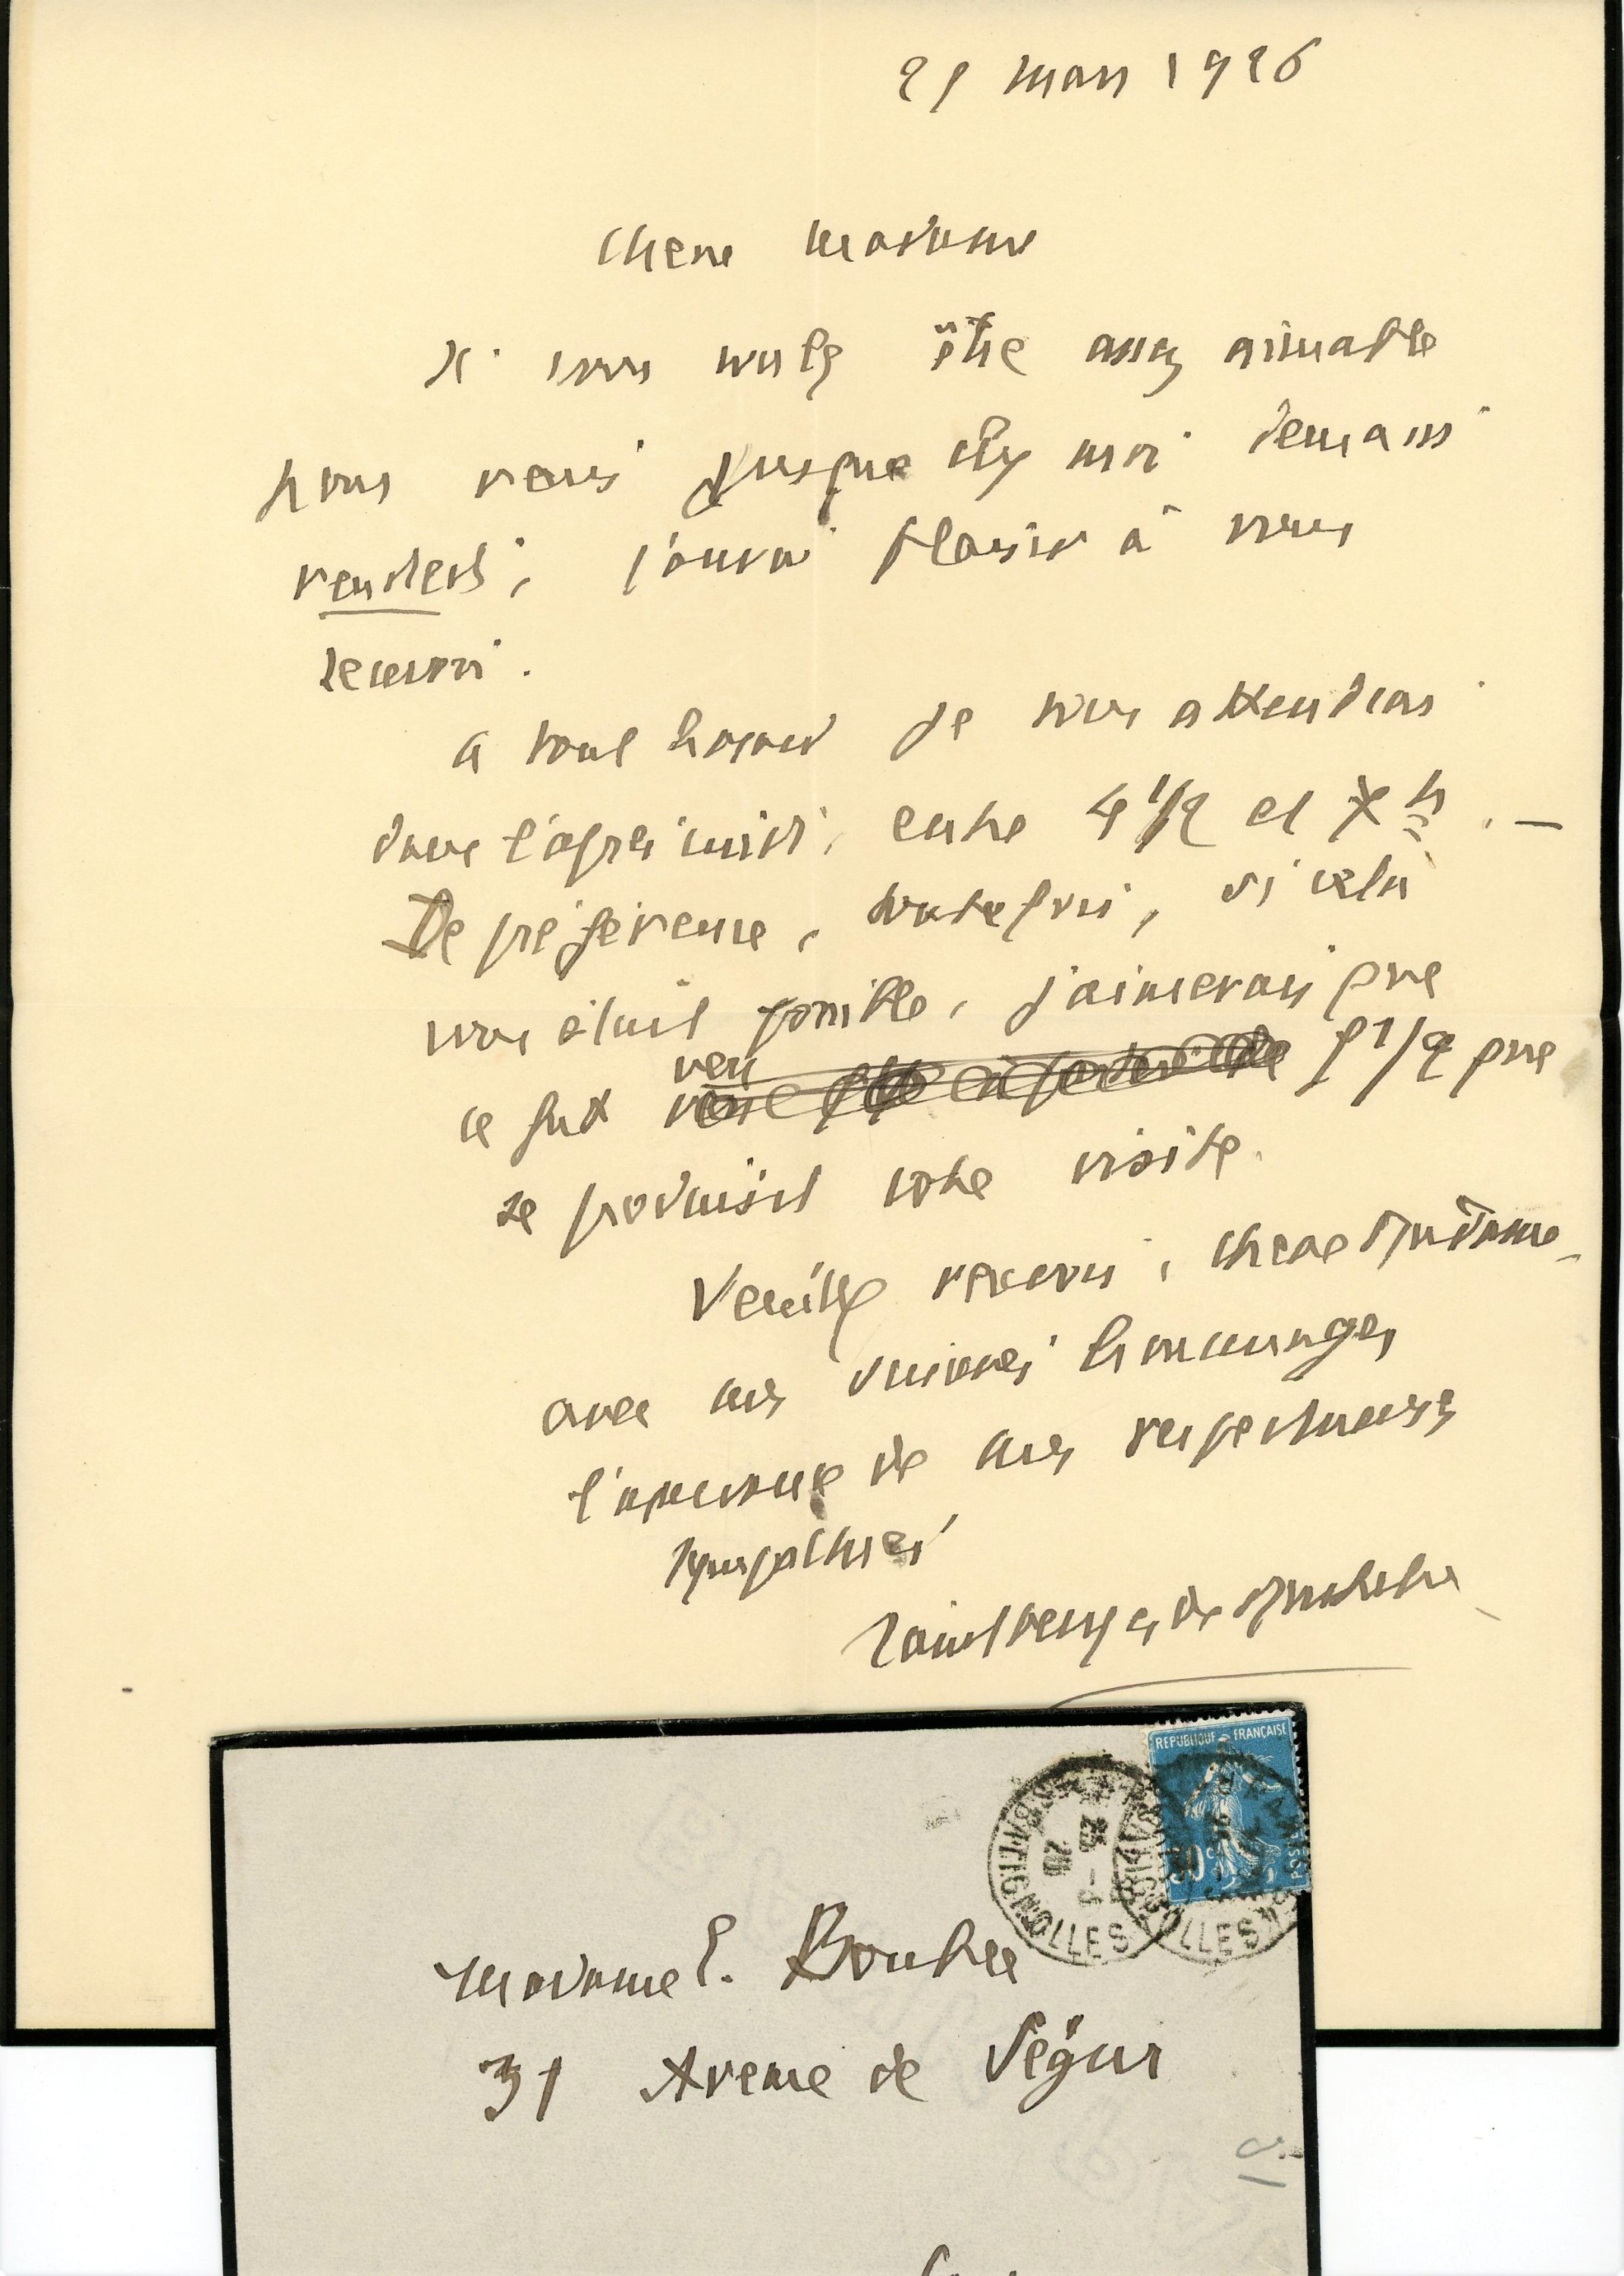 25 mars 1926
Chère Madame
Si vous voulez être assez aimable
pour venir jusque chez moi demain
vendredi, j'aurai plaisir à vous
recevoir.
A tout hasard je vous attendrai
dans l'après midi, entre 4 1/2 et 7 h. —
De préférence, toutefois, si cela
vous était possible, j'aimerais que
ce fut vers 5 1/2 que
se produisit votre visite.
Veuillez recevoir, chère Madame,
avec mes hommages
l'assurance de mes respectueuses
sympathies
Saint Georges de Bouhélier
REPUBLIQUE FRANÇAISE
POSTES
BATIGNOLLES
25 - 3
26
Madame E.
35 Avenue de Ségur